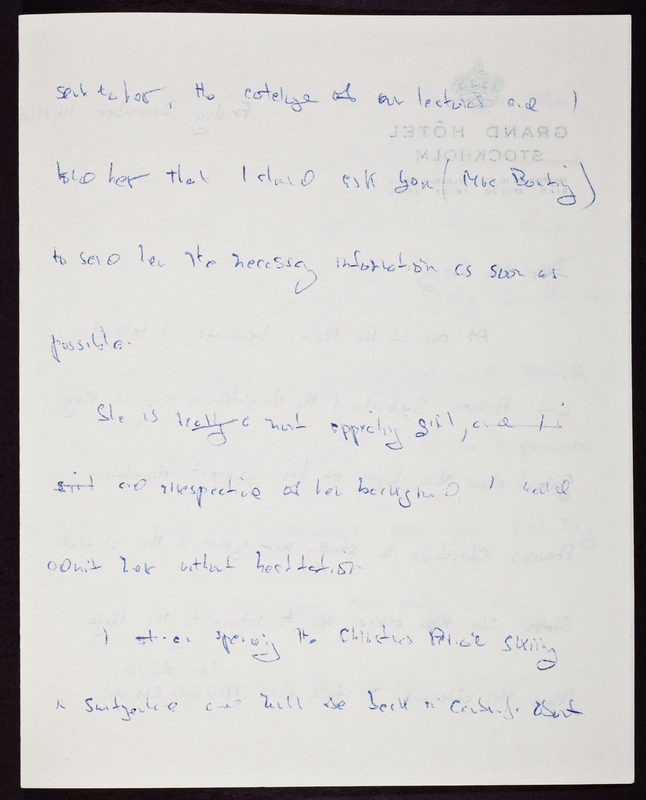 sent to her, the catalogue of our lectures and I
told her that I should ask you (Mrs Bunting)
to send her the necessary information as soon as
possible.
She is really a most appealing girl, and I
and irrespective of her background, I would
admit her without hesitation
I am spending the Christmas Period skiing
in Switzerland and will be back in Cambridge about
GRAND HÔTEL
STOCKHOLM